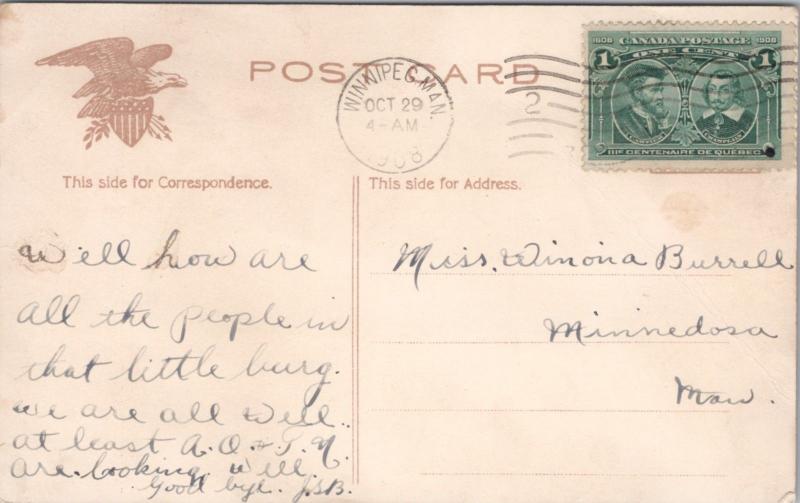 POST CARD
WINNIPEG, MAN.
OCT 29
4-AM
1908
2
1608 CANADA POSTAGE 1908
1 ONE CENT 1
CARTIER CHAMPLAIN
IIIe CENTENAIRE DE QUÉBEC
This side for Correspondence.
This side for Address.
Well how are
all the people in
that little burg.
we are all well.
at least A.O. & T.N.
are looking well.
Good bye. J.S.B.
Miss. Winona Burrell
Minnedosa
Man.